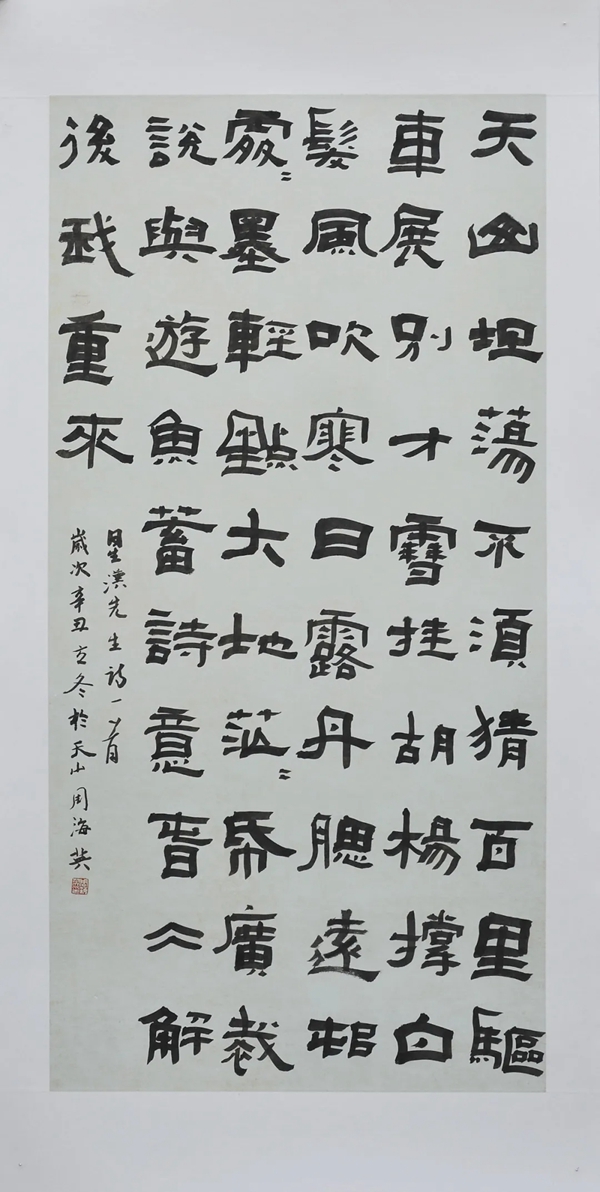 天山坦蕩不須猜百里驅
車展別才雪挂胡楊撐白
髮風吹寒日露丹腮遠邨
處〻墨輕點大地茫〻帋廣裁
說與遊魚蓄詩意春仌解
後我重來
星漢先生詩一首
歲次辛丑立冬於天山周海